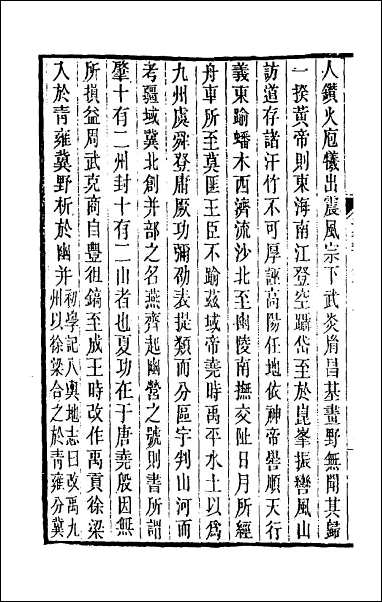 人鑽火庖犧出震風宗下武炎胤昌基畫野無聞其歸
一揆黃帝則東海南江登空躡岱至於崑峯振轡風山
訪道存諸汗竹不可厚誣高陽任地依神帝嚳順天行
義東踰蟠木西濟流沙北至幽陵南撫交阯日月所經
舟車所至莫匪王臣不踰茲域帝堯時禹平水土以爲
九州虞舜登庸厥功彌劭表提類而分區宇判山河而
考疆域冀北創并部之名燕齊起幽營之號則書所謂
肇十有二州封十有二山者也夏功在于唐堯殷因無
所損益周武克商自豐徂鎬至成王時改作禹貢徐梁
入於青雍冀野析於幽并初學記八輿地志曰改禹九
州以徐梁合之於青雍分冀